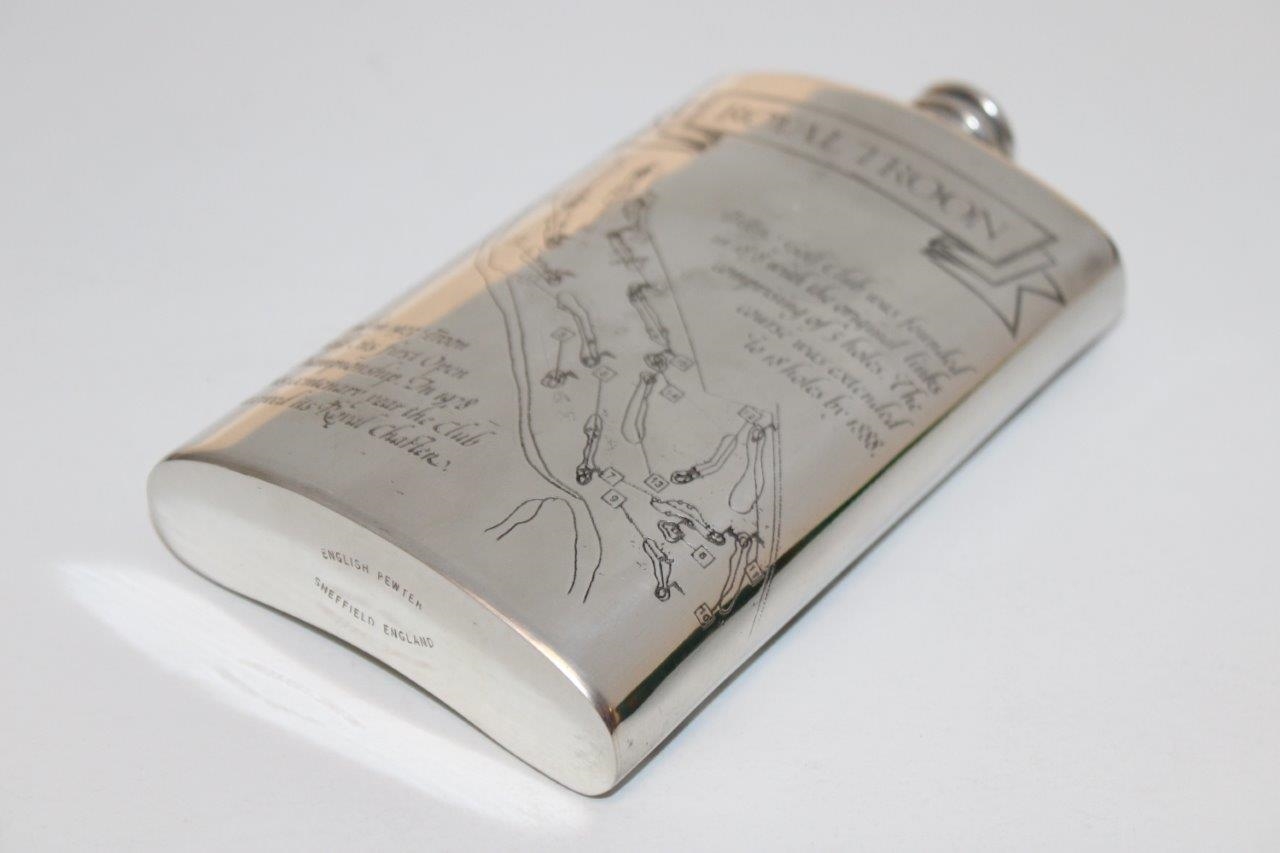 ROYAL TROON
Golf Club was founded
in 1878 with the original links
comprising of 5 holes. The
course was extended
to 18 holes by 1888.
Troon
its first Open
Championship. In 1978
centenary year the Club
its Royal Charter.
7
9
13
14
12
8
11
10
ENGLISH PEWTER
SHEFFIELD ENGLAND